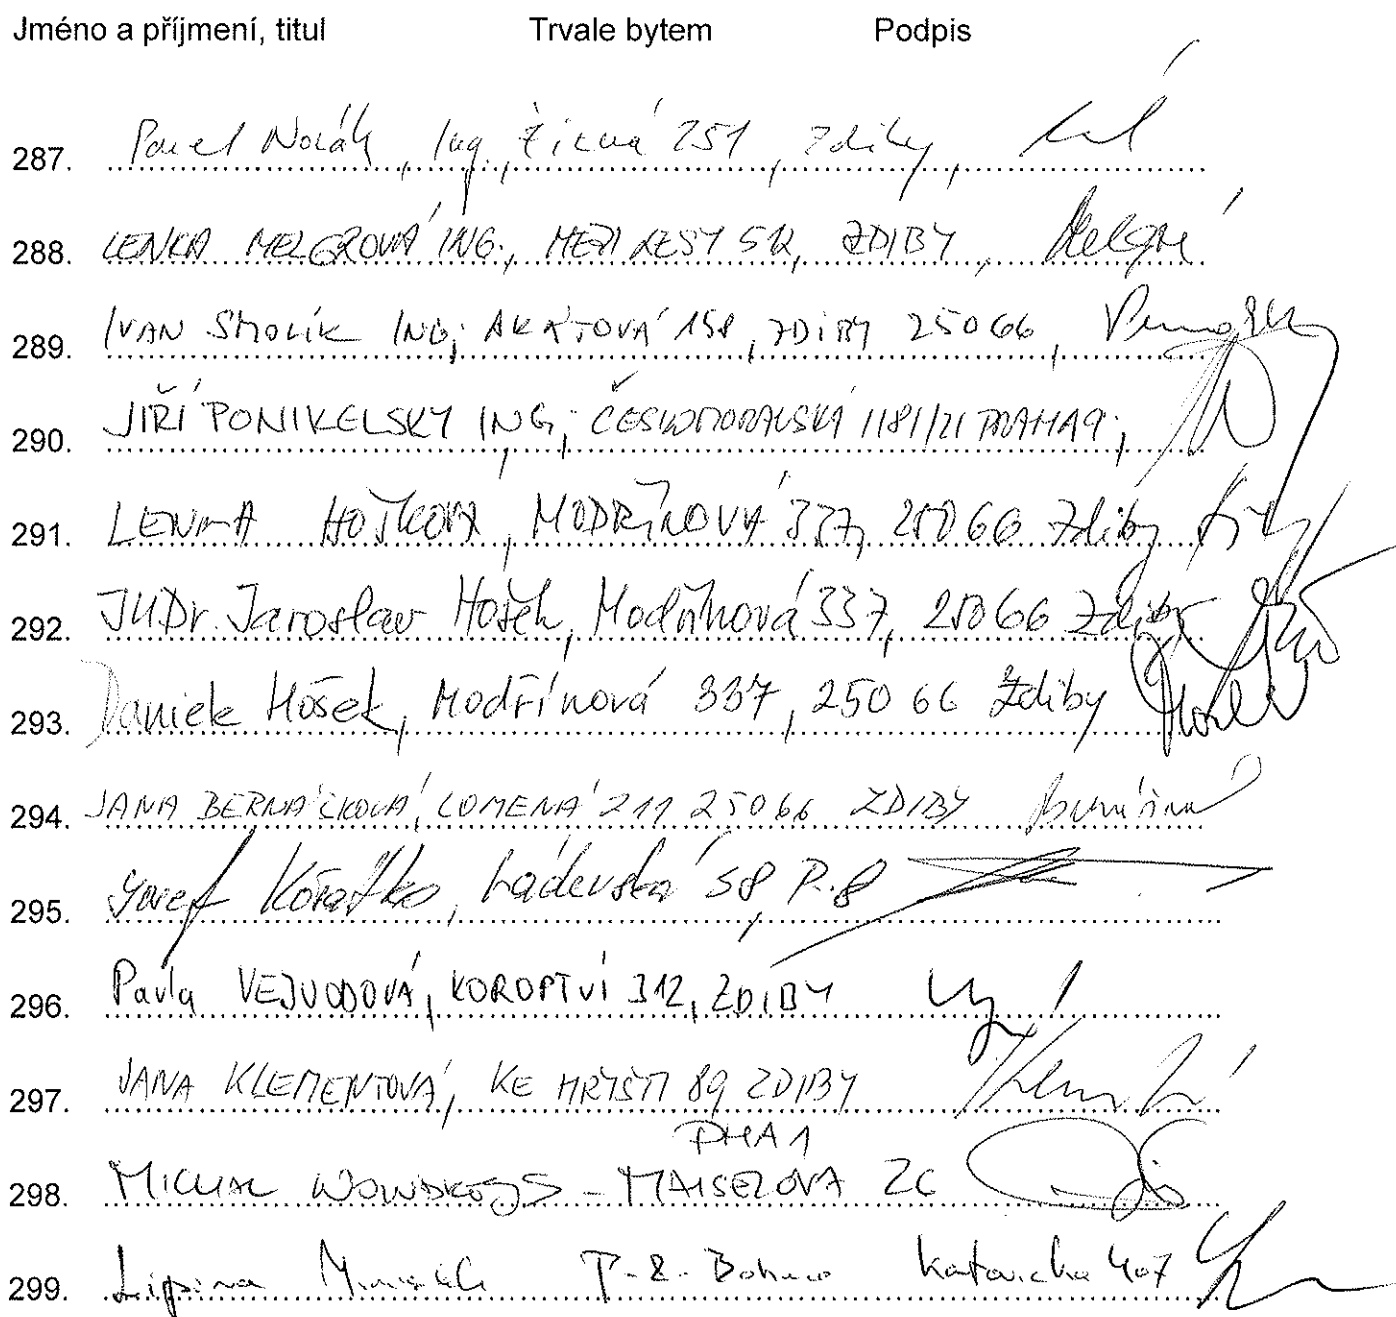 Jméno a příjmení, titul Trvale bytem Podpis
287. Pavel Novák, Ing., Žitná 251, Zdiby,
288. LENKA MELGROVÁ ING., MEZI LESY 512, ZDIBY,
289. IVAN SMOLÍK ING, AKÁTOVÁ 158, ZDIBY 25066,
290. JIŘÍ PONIKELSKÝ ING, ČESKOMORAVSKÁ 1181/21 PRAHA 9,
291. LENKA HOŠKOVÁ, MODŘÍNOVÁ 337, 25066 Zdiby
292. JUDr. Jaroslav Hošek, Modřínová 337, 25066 Zdiby
293. Daniel Hošek, Modřínová 337, 250 66 Zdiby
294. JANA BERNÁČKOVÁ, LOMENÁ 211 25066 ZDIBY
295. Josef 58, P.8
296. Pavla VEJVODOVÁ, KOROPTVÍ 312, ZDIBY
297. JANA KLEMENTOVÁ, KE HŘIŠTI 89 ZDIBY
PHA 1
298. MICHAL - MAISELOVA
299. Lipina 407